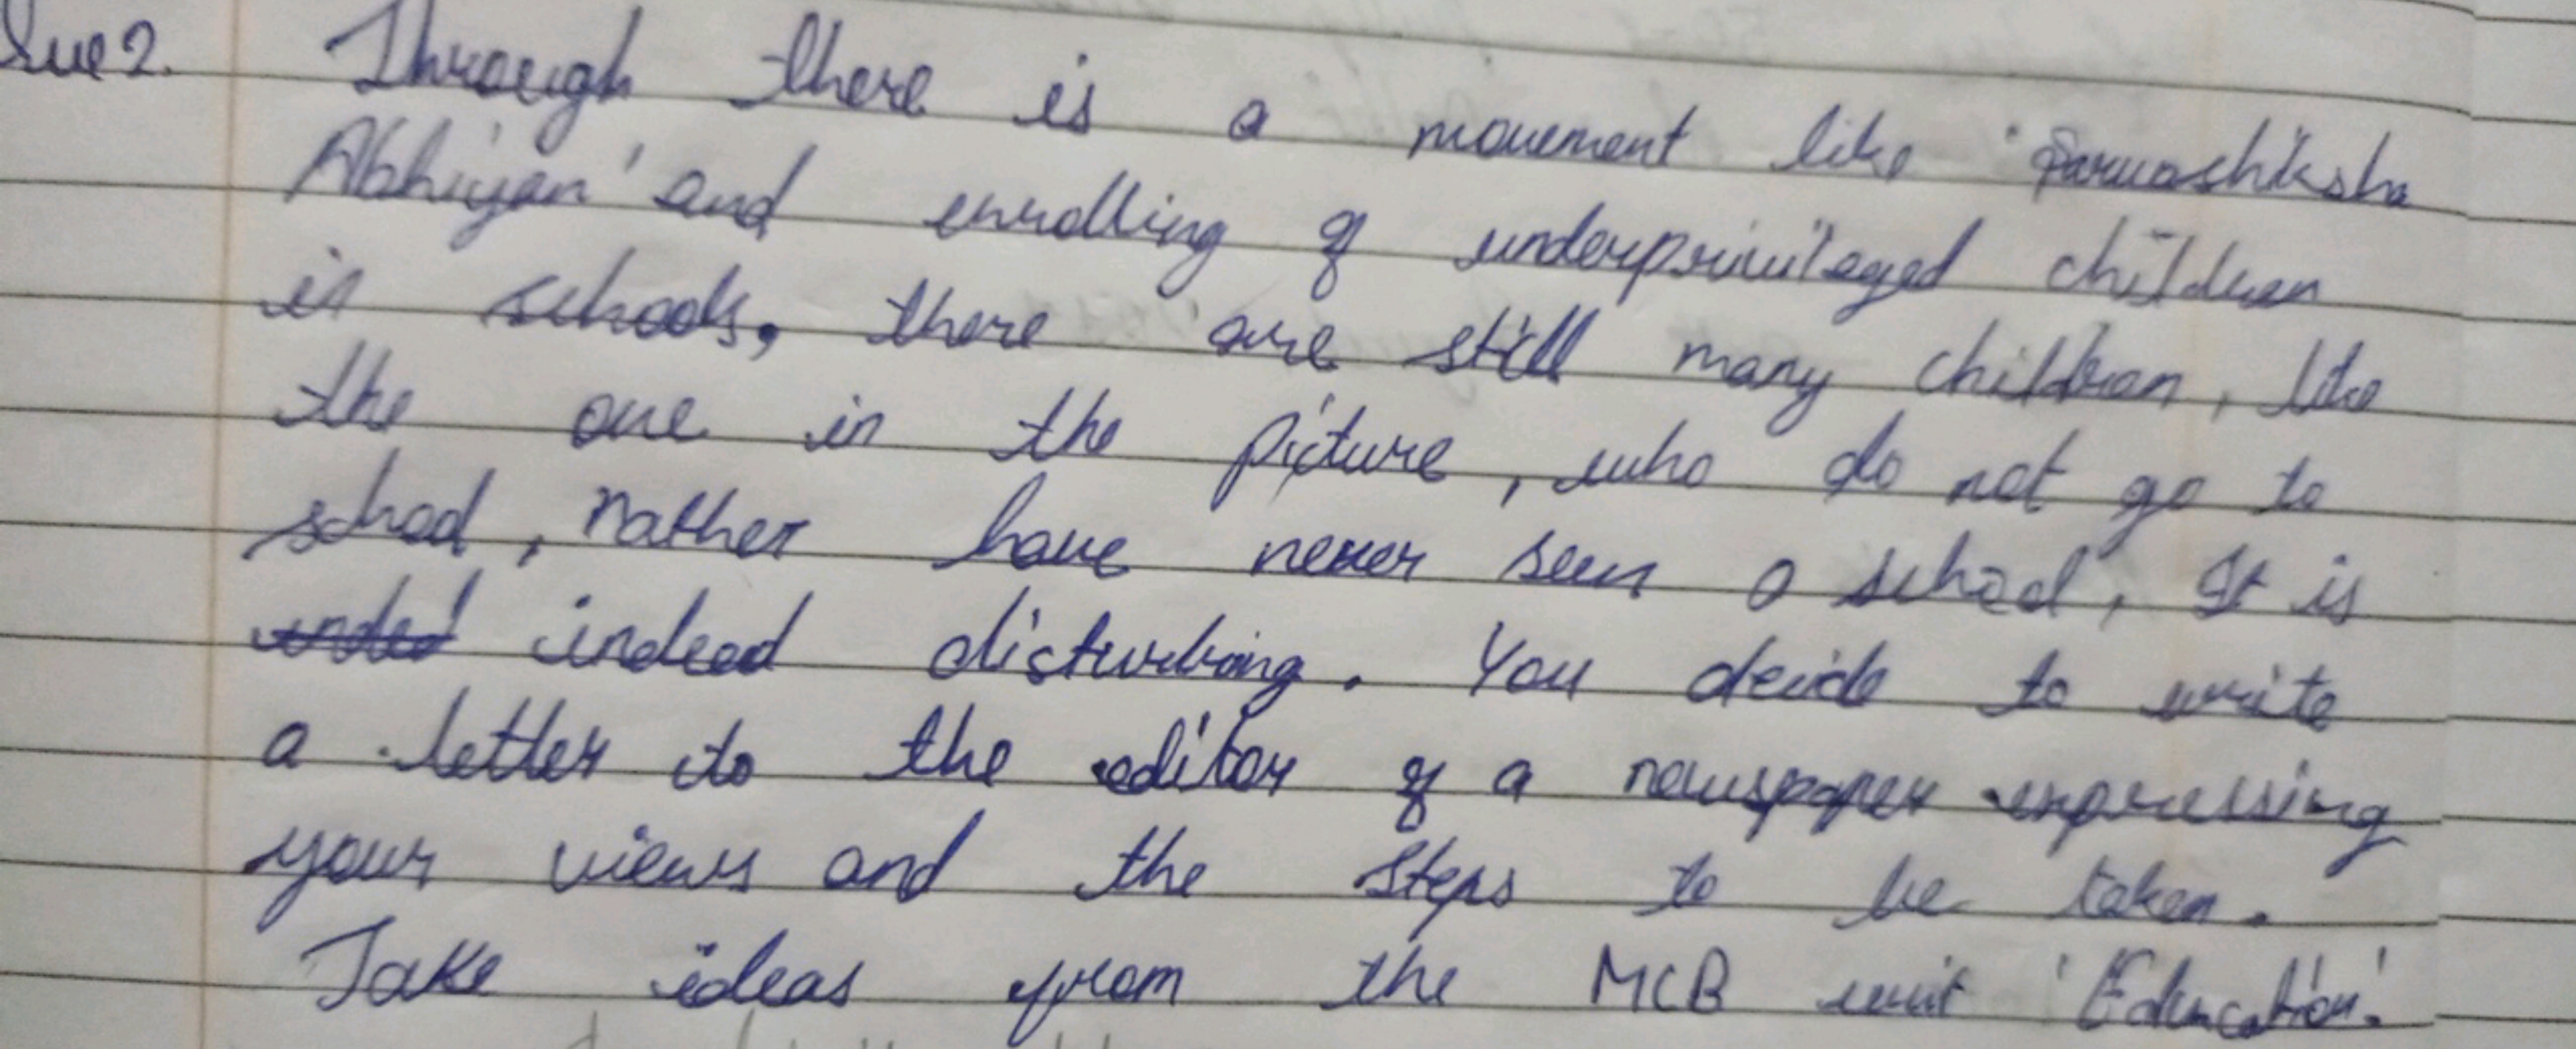 Que 2. Through there is a movement like 'Sarvashiksha
Abhiyan' and enrolling of underprivileged children
in schools, there are still many children, like
the one in the picture, who do not go to
school, rather have never seen a school. It is
indeed disturbing. You decide to write
a letter to the editor of a newspaper expressing
your views and the steps to be taken.
Take ideas from the MCB unit 'Education.'